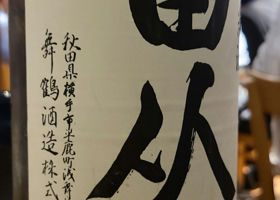 田从
秋田県横手市平鹿町浅舞
舞鶴酒造株式